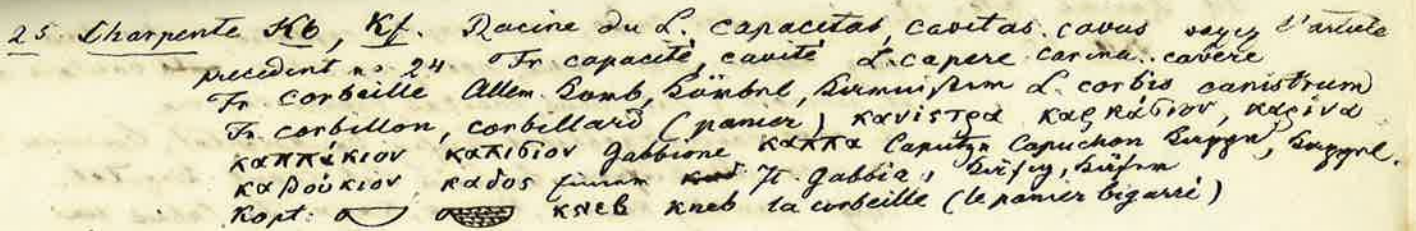 25 Charpente Kb, Kf. Racine du L. capacitas, cavitas. cavus voyez l'article
precedent no 24 Fr capacité, cavité L. capere carina.. cavere
Fr corbeille Allem. Korb, L. corbis canistrum
Fr. corbillon, corbillard (panier) κανιςτρα καρκάδιον, καρίνα
καππάκιον καπιδιον gabbione καππα Caputze Capuchon Kappe,
καδούκιον, καδος It gabbia, Käfig,
Kopt. ⲕⲛⲉⲃ kneb la corbeille (le panier bigarré)